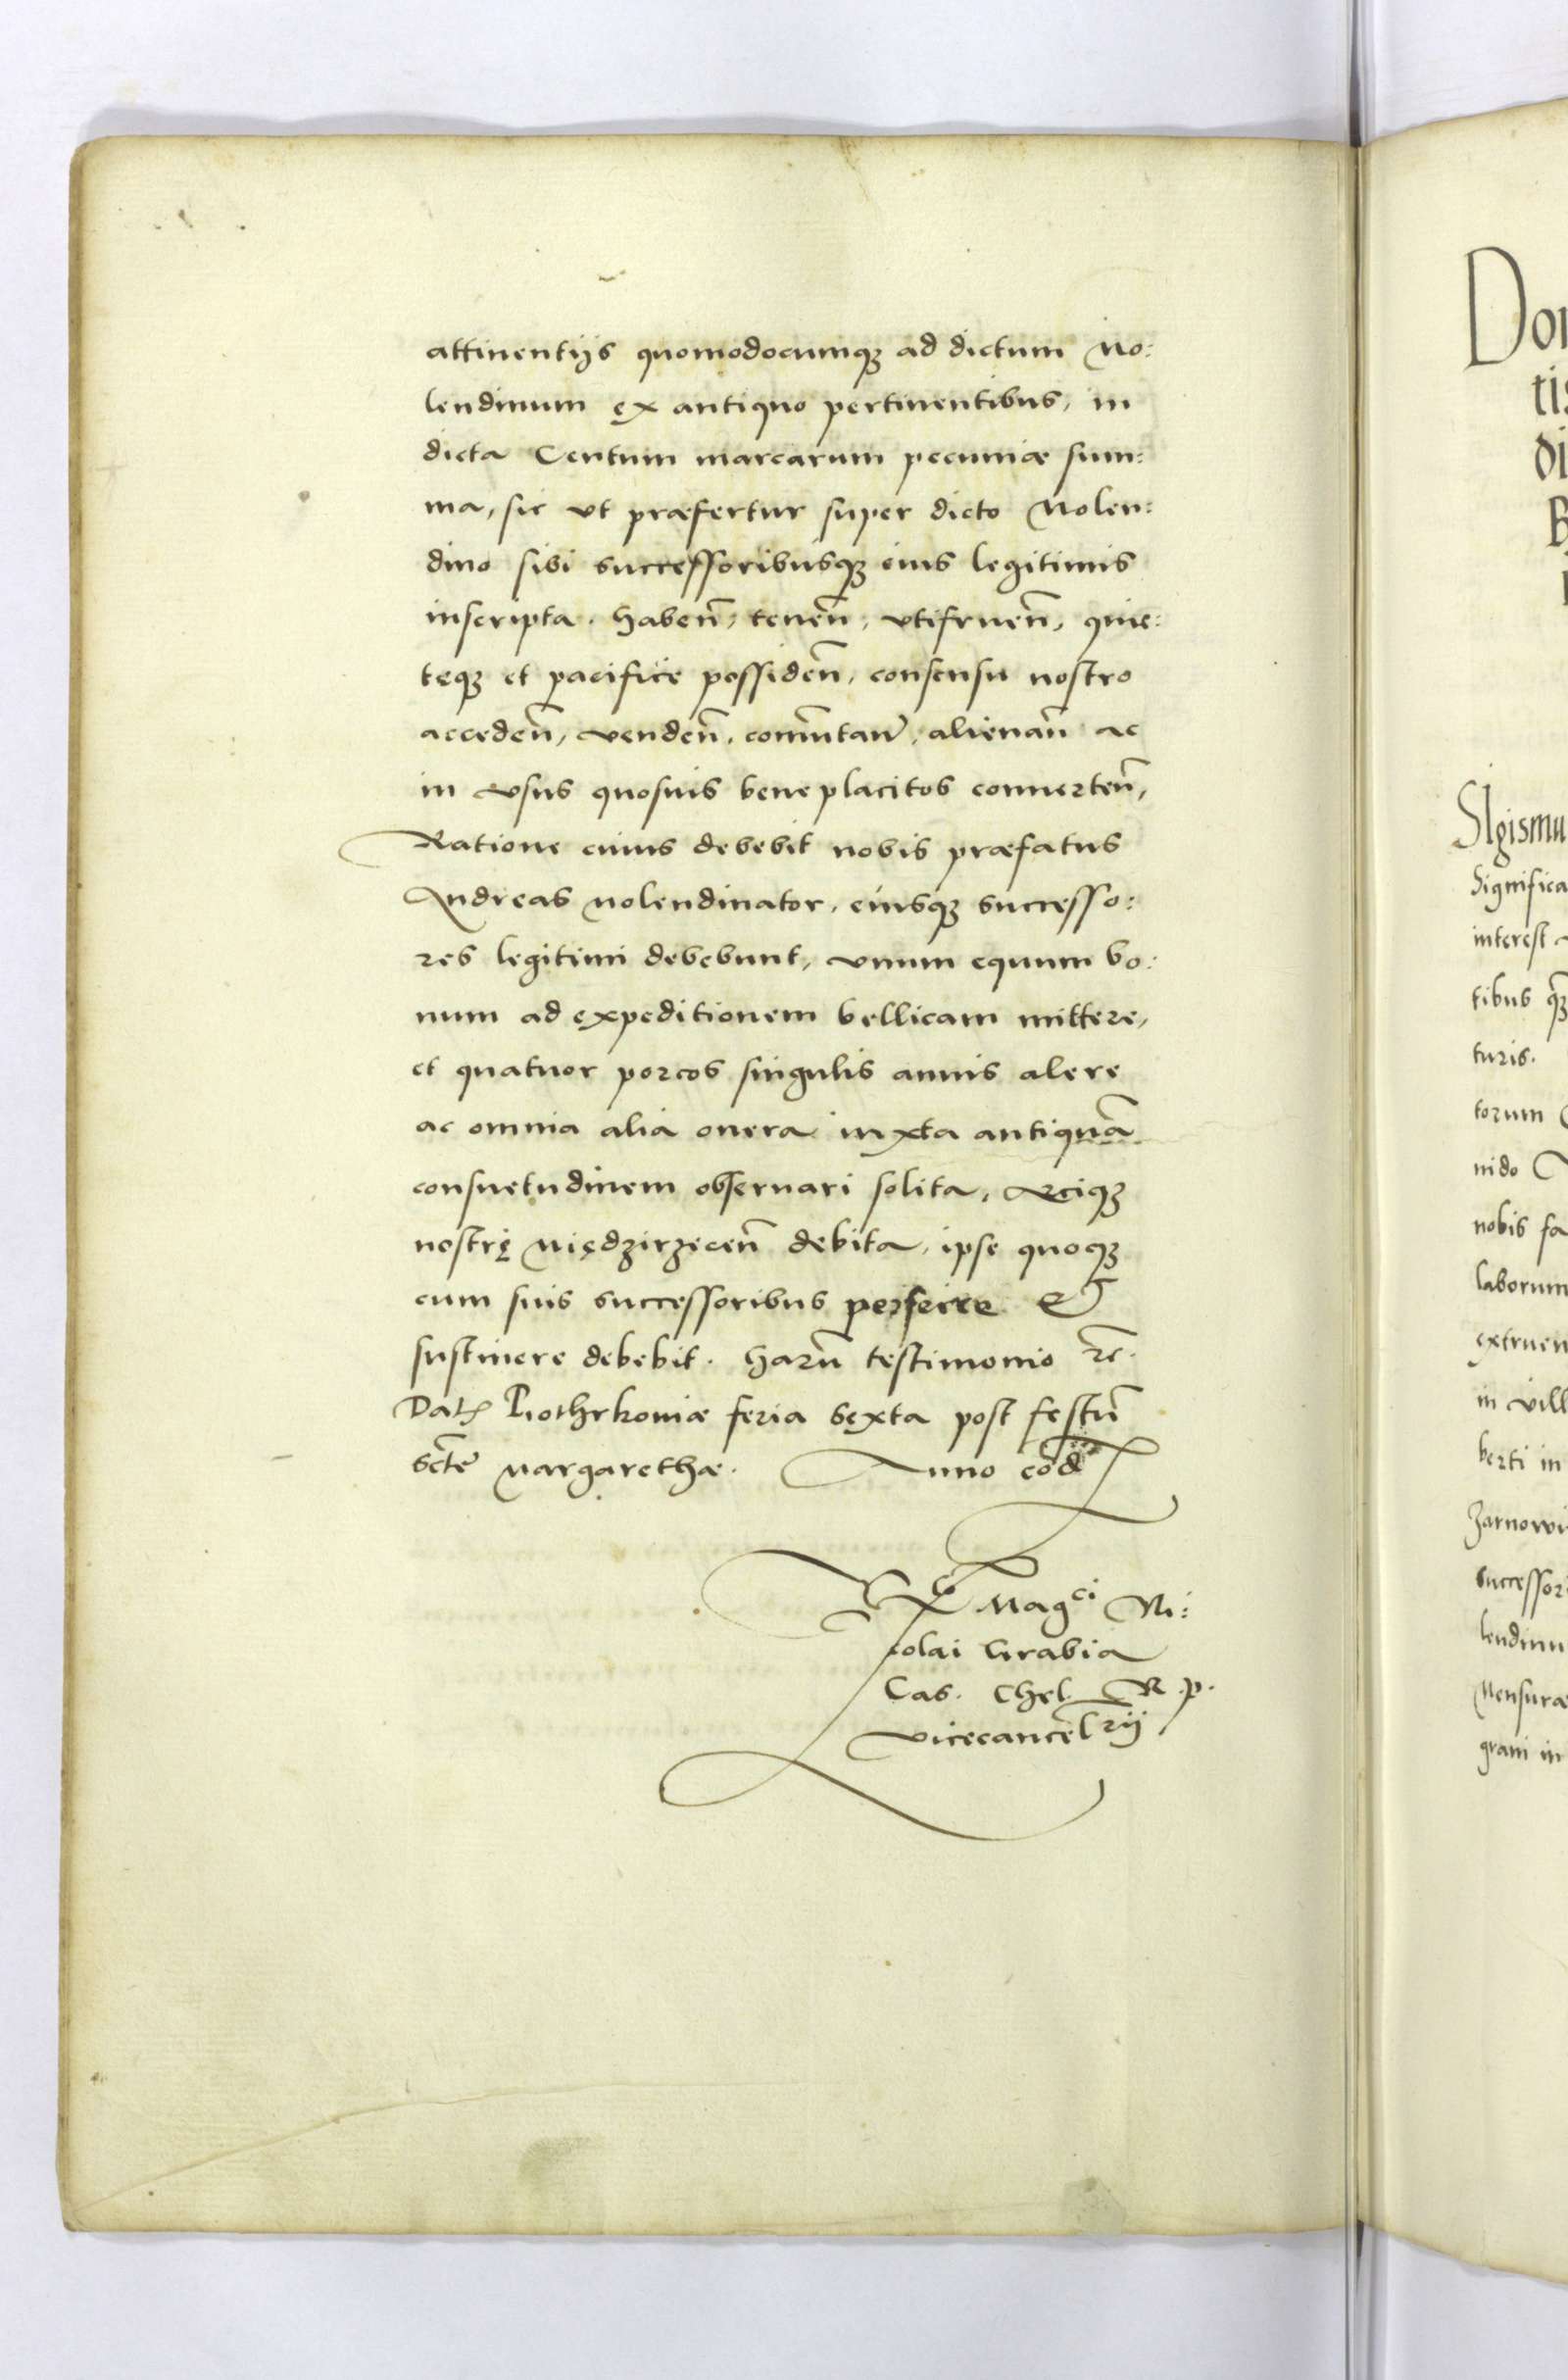 attinentijs quomodocumqꝫ ad dictum Mo:
lendinum ex antiquo pertinentibus, in
dicta Centum marcarum pecuniæ sum:
ma, sic vt præfertur super dicto Molen:
dino sibi successoribusqꝫ eius legitimis
inscripta. habeñ, teneñ, vtifrueñ, quie:
teqꝫ et pacifice possideñ, consensu nostro
accedeñ, vendeñ, com̃utañ, alienañ ac
in vsus quosuis beneplacitos conuerteñ,
Ratione cuius debebit nobis præfatus
Andreas molendinator, eiusqꝫ successo:
res legitimi debebunt, vnum equum bo:
num ad expeditionem bellicam mittere,
et quatuor porcos singulis annis alere
ac omnia alia onera iuxta antiquā
consuetudinem obseruari solita, Arciqꝫ
nostrę Międzirzeceñ debita, ipse quoqꝫ
cum suis successoribus perficere et
sustinere debebit. Harū testimonio rc̄.
Dat Piothrkoniæ feria sexta post festū
Scte Margarethæ. Anno eod
Magci Ni:
colai Grabia
Cas. Chel. R. p.
vicecancelrij
Dom
tis
di
Sigismu
Significa
interest
tibus qꝫ
turis.
torum
nido
nobis fa
laborum
extruen
in vill
berti in
Zarnowi
successor
lendinu
Mensuræ
grani in